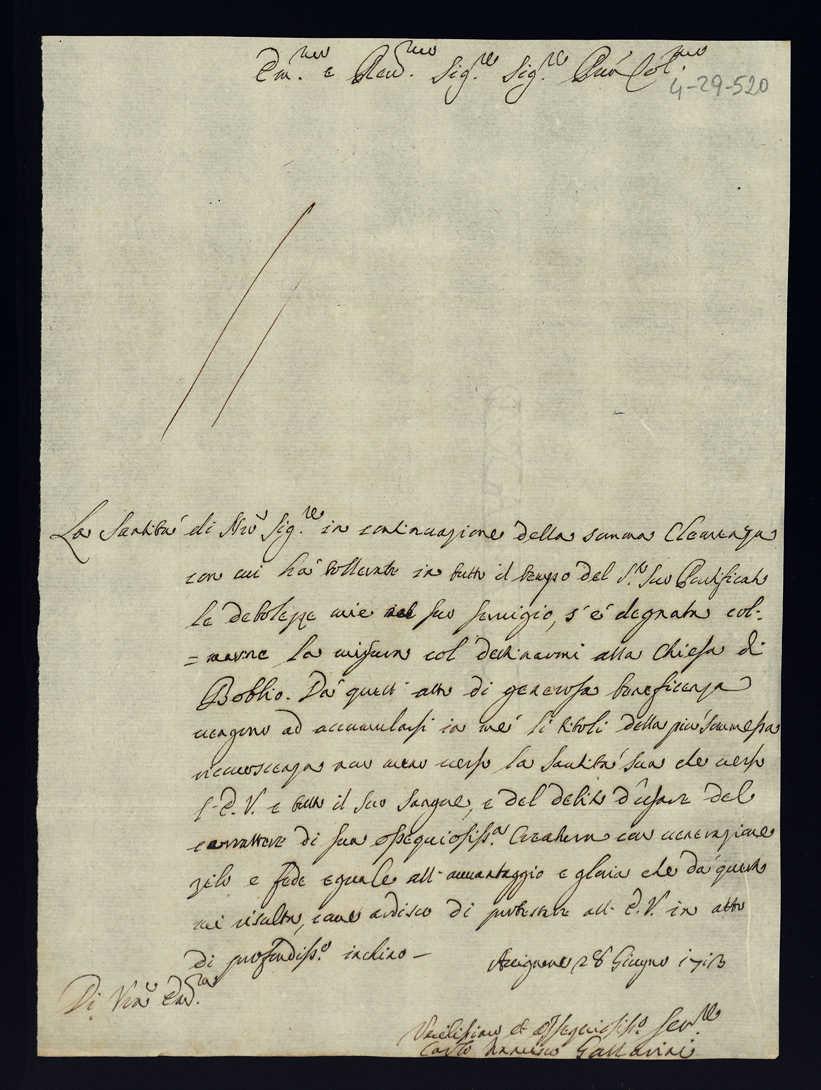 Em.mo e Rev.mo Sig.re Sig.re Pró Col.mo
4-29-520
La Santità di Nrõ Sig.re in continuazione della somma Clemenza
con cui hà tollerate in tutto il tempo del S.to Suo Pontificato
le debolezze mie nel suo servigio, s'è degnata col=
=marne la misura col destinarmi alla Chiesa di
Bobbio. Dà questi atti di generosa beneficenza
vengono ad accumularsi in mé li titoli della più sommessa
riconoscenza non meno verso la Santità Sua che verso
l'E. V. e tutto il suo sangue, e del debito d'usare del
carattere di sua ossequiosiss.a Creatura con venerazione
zelo e fede eguale all'avvantaggio e gloria che dà questa
mi risulta, come ardisco di protestare all'E. V. in atto
di profondiss.o inchino—
Avignone 28 Giugno 1713
Di Vrã Em.za
Umilissimo et ossequiosiss.o Ser.re
Carlo Francesco Gallarini